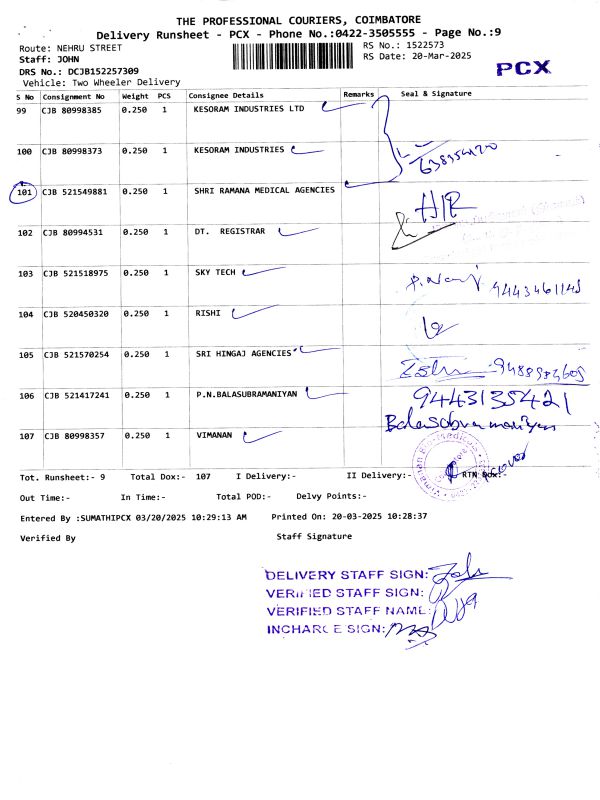 THE PROFESSIONAL COURIERS, COIMBATORE
Delivery Runsheet - PCX - Phone No.:0422-3505555 - Page No.:9
Route: NEHRU STREET
RS No.: 1522573
Staff: JOHN
RS Date: 20-Mar-2025
PCX
DRS No.: DCJB152257309
Vehicle: Two Wheeler Delivery
S No Consignment No Weight PCS Consignee Details Remarks Seal & Signature
99 CJB 80998385 0.250 1 KESORAM INDUSTRIES LTD
100 CJB 80998373 0.250 1 KESORAM INDUSTRIES
101 CJB 521549881 0.250 1 SHRI RAMANA MEDICAL AGENCIES
102 CJB 80994531 0.250 1 DT. REGISTRAR
103 CJB 521518975 0.250 1 SKY TECH
9443461145
104 CJB 520450320 0.250 1 RISHI
105 CJB 521570254 0.250 1 SRI HINGAJ AGENCIES
106 CJB 521417241 0.250 1 P.N.BALASUBRAMANIYAN
9443135421
Balasubramaniyan
107 CJB 80998357 0.250 1 VIMANAN
Tot. Runsheet:- 9 Total Dox:- 107 I Delivery:- II Delivery:- RTN Dox:
Out Time:- In Time:- Total POD:- Delvy Points:-
Entered By :SUMATHIPCX 03/20/2025 10:29:13 AM Printed On: 20-03-2025 10:28:37
Verified By Staff Signature
DELIVERY STAFF SIGN:
VERIFIED STAFF SIGN:
VERIFIED STAFF NAME:
INCHARGE SIGN: